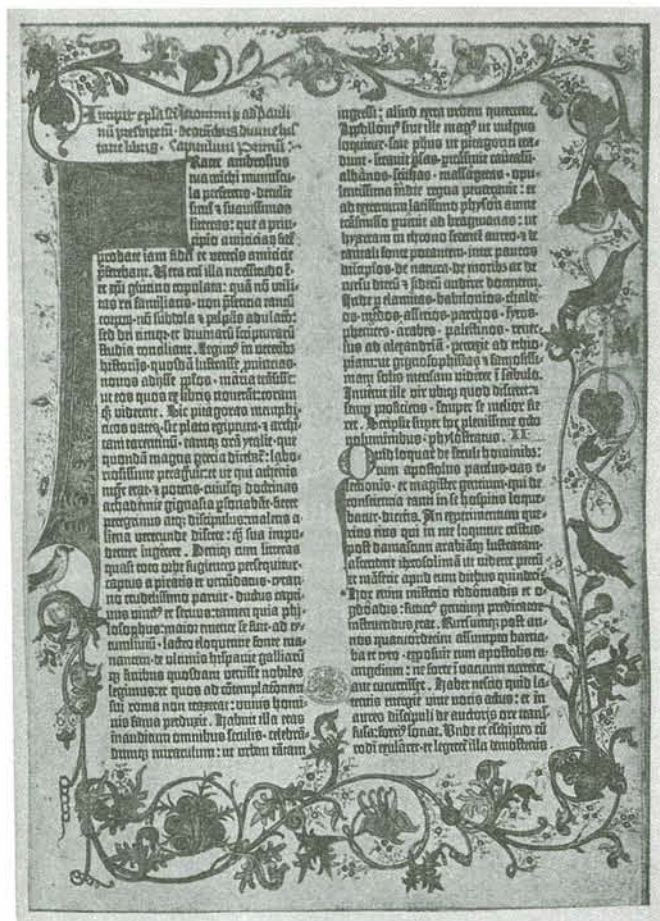 Incipit epl̃a sc̃i Ieronimi
ad pauli
nũ presbiterũ de
divine his
torie libris. Capitulum Primũ:
Frater ambrosius
tua michi munuscu
la perferens. detulit
simul et suavissimas
litteras: que a prin
cipio amiciciaꝝ fidẽ
probate iam fidei et veteris amicicie
p̃ferebant. Vera eñ illa necessitudo ẽ.
et xp̃i glutino copulata: quã nõ utili
tas rei familiaris. nõ p̃sencia tantũ
corporꝝ. nõ subdola et palpãs adulacõ:
sed dei timor. et divinarũ scripturarũ
studia conciliant. Legimꝰ in veteribꝰ
historijs. quosdã lustrasse p̃vincias.
novos adijsse pp̃los. maria trãsisse:
ut eos quos ex libris noverãt: coram
qꝫ viderent. Sic pitagoras memphi
ticos vates. sic plato egiptum. et archi
tam tarentinũ. eamqꝫ orã ytalie. que
quondã magna grecia dicebat̃: labo
riosissime peragravit: et ut qui athenis
mgr̃ erat. et potens. cuiusqꝫ doctrinas
achademie gignasia p̃sonabãt. fieret
peregrinus atqꝫ discipulus: malens a
liena verecunde discere: qͣꝫ sua impu
denter ingerere. Deniqꝫ cum litteras
quasi toto orbe fugientes persequitur.
captus a piratis et venundatus. tyran
no crudelissimo paruit. ductus capti
vus vinctꝰ et servus: tamen quia phi
losophus: maior emente se fuit. ad ty
tumlivũ. lacteo eloquentie fonte ma
nantem. de ultimis hispanie galliarũ
qꝫ finibus quosdam venisse nobiles
legimus: et quos ad cõtemplacõnem
sui roma non traxerat: unius homi
nis fama perduxit. Habuit illa etas
inauditum omnibus seculis. celebrã
dumqꝫ miraculum: ut urbem tãtam
ingressi: aliud extra urbem quererent.
Apollonꝰ sive ille magꝰ ut vulgus
loquitur. sive phũs ut pitagorici tra
dunt. intravit p̃sas. p̃transivit caucasũ.
albanos. scithas. massagetas. opu
lentissima indie regna penetravit: et
ad extremum latissimo physon amne
trãsmisso pervenit ad bragmanas: ut
hyarcam in throno sedentẽ aureo. et de
tantali fonte potantem. inter paucos
discipulos. de natura. de moribꝰ ac de
cursu dierũ et siderũ audiret docentem.
Inde per elamitas. babilonios. chalde
os. medos. assirios. parthos. syros.
phenices. arabes. palestinos. rever
sus ad alexandriã. perrexit ad ethio
piam: ut gignosophistas et famosissi
mam solis mensam videret ĩ sabulo.
Invenit ille vir ubiqꝫ quod disceret: et
semp̃ proficiens. semper se melior fie
ret. Scripsit super hoc plenissime octo
voluminibus. phylostratus. II
Quid loquar de seculi hominibꝰ:
cum apostolus paulus. vas e
lectionis. et magister gentium. qui de
conscientia tanti in se hospitis loque
batur. dicens. An experimentum que
ritis eius qui in me loquitur cristus.
post damascum arabiãqꝫ lustratam.
ascenderit iherosolimã ut videret petrũ
et mãserit apud eum diebus quindeci.
Hoc enim misterio ebdomadis et o
gdoadis: futurꝰ gentium predicator
instruendus erat. Rursumqꝫ post an
nos quatuordecim assumpto barna
ba et tyto. exposuit cum apostolis eu
angelium: ne forte ĩ vacuum curreret
aut cucurrisset. Habet nescio quid la
tentis energie vive vocis actus: et in
aures discipuli de auctoris ore trans
fusa: fortiꝰ sonat. Unde et eschines cũ
rodi exularet. et legeret̃ illa demostenis